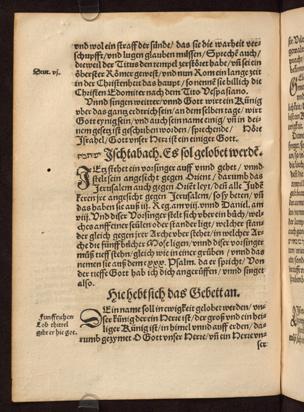 vnd wol ein straff der sünde/ das sie die warheit ver-
schupfft/ vnd lugen glauben müssen/ Sprechē auch/
dieweil der Titus den tempel zerstöret habe/ vñ sei ein
öberster Römer gewest/ vnd nun Rom ein lange zeit
in der Christenheit das haupt/ so nennē sie billich die
Christen Edomiter nach dem Tito Vespasiano.
Deut. vj.
Vnnd singen weitter/ vnnd Gott wirt ein König
vber das gang erdtrich sein/ an dem selben tage/ wirt
Gott eynig sein/ vnd auch sein name einig/ vñ in dei-
nem gesetz ist geschriben worden/ sprechende/ Höre
Israhel/ Gott vnser Herr ist ein einiger Gott.
Ischtabach. Es sol gelobet werdē.
IEtz stehet ein vorsinger auff vnnd gehet/ vnnd
stelt sein angesicht gegen Orient/ darumb das
Jerusalem auch gegen Oriēt leyt/ deñ alle Jüdē
keren jre angesicht gegen Jerusalem/ so sy beten/ vñ
das haben sie auß iij. Reg. am viij. vnnd Daniel. am
vj. Vnd diser Vorsinger stelt sich vber ein bůch/ wel-
ches auff einer seülen oder stander ligt/ welcher stan-
der gleich gegen jrer Arche vber stehet/ in welcher Ar-
che die fünff bücher Mose ligen/ vnnd diser vorsinger
můß tieff stehn/ gleich wie in einer grůben/ vnnd das
auß dem cxxx. Psalm. da er spricht/ Von
der tieffe Gott hab ich dich angerüffen/ vnnd singet
also.
Hie hebt sich das Gebett an.
Funffzehen
Lob
DEin name soll in ewigkeit gelobet werden/ vn-
ser künig der ein Herre ist/ der groß vnd ein hei-
liger König ist/ in himel vnnd auff erden/ da-
rumb gezymet O Gott vnser Herre/ vñ ein Herre vn-
ser